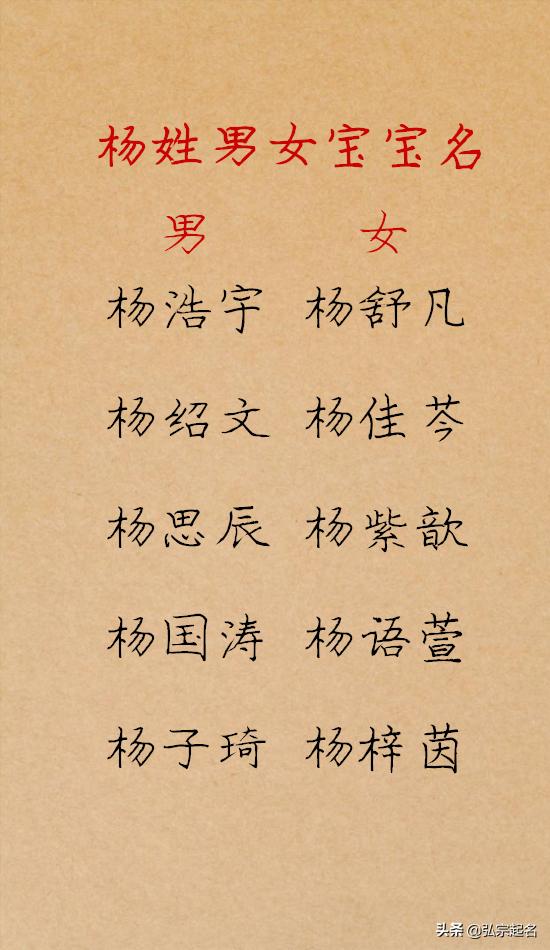 杨姓男女宝宝名
男 女
杨浩宇 杨舒凡
杨绍文 杨佳芩
杨思辰 杨紫歆
杨国涛 杨语萱
杨子琦 杨梓茵
头条 @弘宗起名